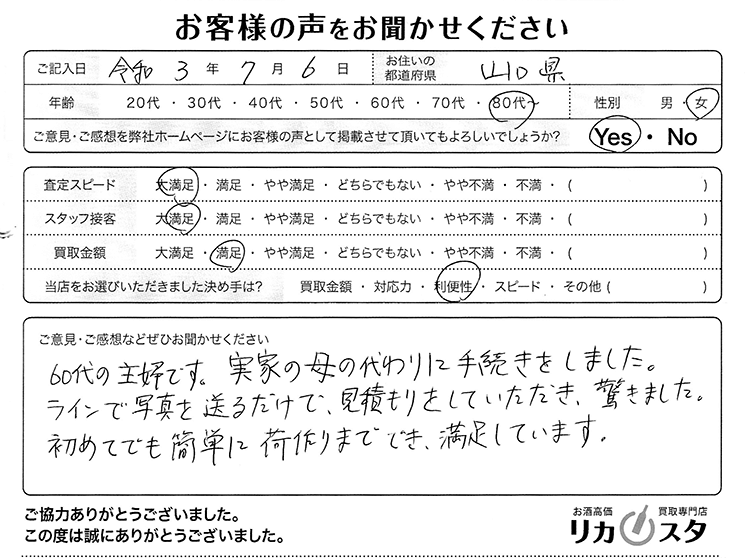 お客様の声をお聞かせください
ご記入日 令和 3 年 7 月 6 日 お住いの都道府県 山口県
年齢 20代 ・ 30代 ・ 40代 ・ 50代 ・ 60代 ・ 70代 ・ 80代〜 性別 男 ・ 女
ご意見・ご感想を弊社ホームページにお客様の声として掲載させて頂いてもよろしいでしょうか? Yes ・ No
査定スピード 大満足 ・ 満足 ・ やや満足 ・ どちらでもない ・ やや不満 ・ 不満 ・ ( )
スタッフ接客 大満足 ・ 満足 ・ やや満足 ・ どちらでもない ・ やや不満 ・ 不満 ・ ( )
買取金額 大満足 ・ 満足 ・ やや満足 ・ どちらでもない ・ やや不満 ・ 不満 ・ ( )
当店をお選びいただきました決め手は? 買取金額 ・ 対応力 ・ 利便性 ・ スピード ・ その他 ( )
ご意見・ご感想などぜひお聞かせください
60代の主婦です。実家の母の代わりに手続きをしました。
ラインで写真を送るだけで、見積もりをしていただき、驚きました。
初めてでも簡単に荷作りまででき、満足しています。
ご協力ありがとうございました。
この度は誠にありがとうございました。
お酒高価 買取専門店
リカスタ